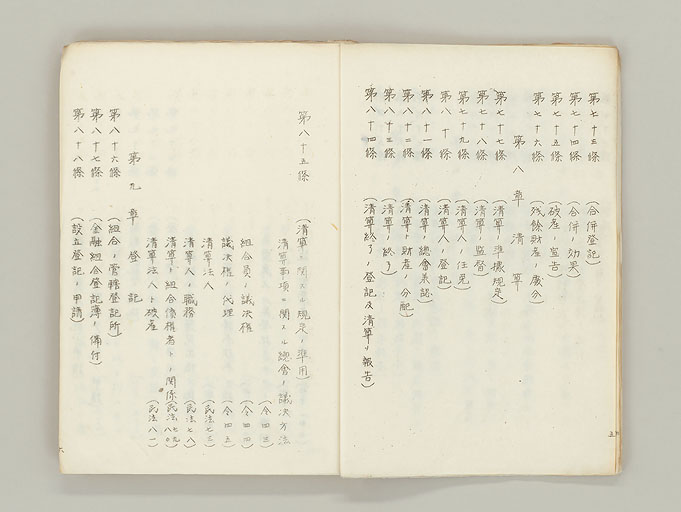 第七十三條 (合併登記)
第七十四條 (合併ノ効果)
第七十五條 (破産ノ宣告)
第七十六條 (残餘財産ノ處分)
第八章 清算
第七十七條 (清算ノ準據規定)
第七十八條 (清算ノ監督)
第七十九條 (清算人ノ任免)
第八十條 (清算人ノ登記)
第八十一條 (清算ノ總會承認)
第八十二條 (清算ノ財産ノ分配)
第八十三條 (清算ノ終了)
第八十四條 (清算終了ノ登記及清算ノ報告)
五
第八十五條 (清算ニ関スル規定ノ準用)
清算事項ニ関スル總會ノ議決方法 (令四三)
組合員ノ議決権 (令四四)
議決権ノ代理 (令四五)
清算法人 (民法七三)
清算人ノ職務 (民法七八)
清算ノ組合債権者トノ関係 (民法七九 八〇)
清算法人ト破産 (民法八一)
第九章 登記
第八十六條 (組合ノ管轄登記所)
第八十七條 (金融組合登記簿ノ備付)
第八十八條 (設立登記ノ申請)
六